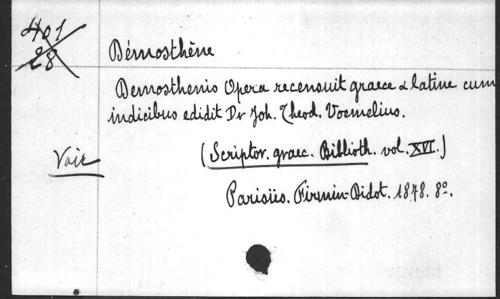 401
28
Démosthène
Demosthenis Opera recensuit graece & latine cum
indicibus edidit Dr Joh. Theod. Voemelius.
Voir
(Scriptor. graec. Biblioth. vol. XVI.)
Parisiis. Firmin-Didot. 1878. 8o.